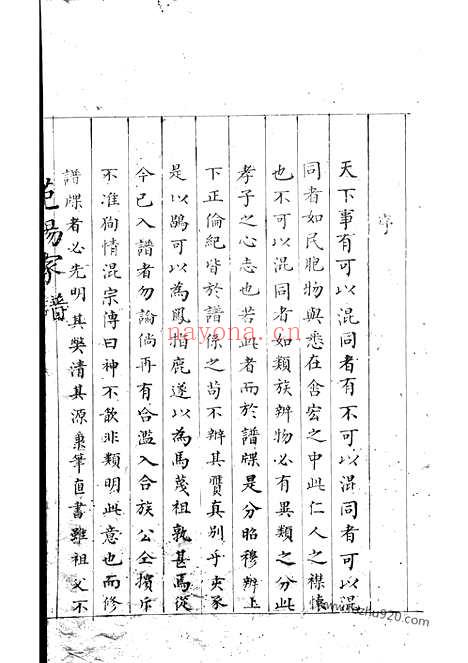 序
天下事有可以混同者有不可以混同者可以混
同者如民胞物與悉在含宏之中此仁人之襟懷
也不可以混同者如類族辨物必有異類之分此
孝子之心志也若此者而於譜牒是分昭穆辨上
下正倫紀皆於譜係之苟不辨其贋真別乎
是以鴟可以為鳳指鹿遂以為馬蔑祖孰甚焉從
今已入譜者勿論倘再有合濫入合族公仝擯斥
不准狥情混宗傳曰神不歆非類明此意也而修
譜牒者必先明其清其源秉筆直書雖祖父不
范陽家譜
nayona.cn
920.com